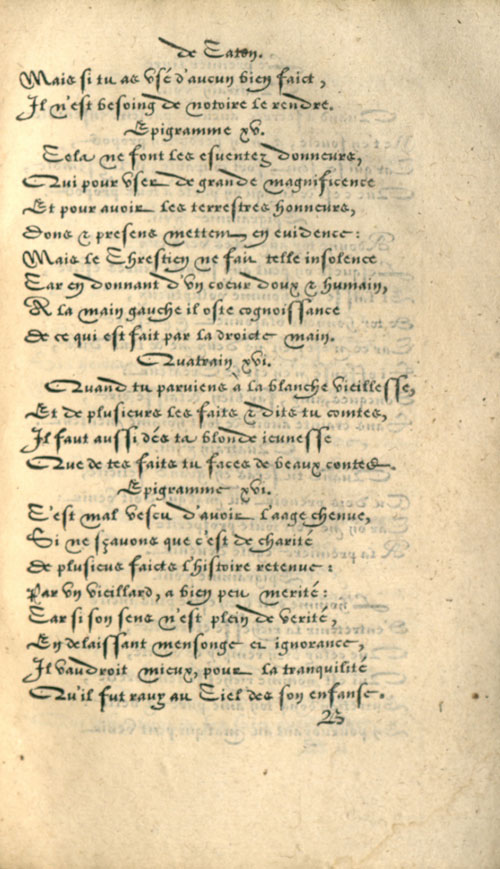 de Caton.
Mais si tu as vsé d'aucun bien faict,
Il n'est besoing de notoire le rendre.
Epigramme xv.
Cela ne font les esuentez donneurs,
Qui pour vser de grande magnificence
Et pour avoir les terrestres honneurs,
Dons & presens mettent en evidence:
Mais le Chrestien ne fait telle insolence
Car en donnant d'vn coeur doux & humain,
A la main gauche il oste cognoissance
De ce qui est fait par la droicte main.
Quatrain xvi.
Quand tu parviens à la blanche vieillesse,
Et de plusieurs les faits & dits tu comtes,
Il faut aussi dés ta blonde ieunesse
Que de tes faits tu faces de beaux contes.
Epigramme xvi.
C'est mal vescu d'avoir l'aage chenue,
Si ne sçavons que c'est de charité
De plusieurs faicts l'histoire retenue:
Par vn vieillard, a bien peu merité:
Car si son sens n'est plein de verité,
En delaissant mensonge et ignorance,
Il vaudroit mieux, pour la tranquilité
Qu'il fut ravy au Ciel des son enfanse.
B3